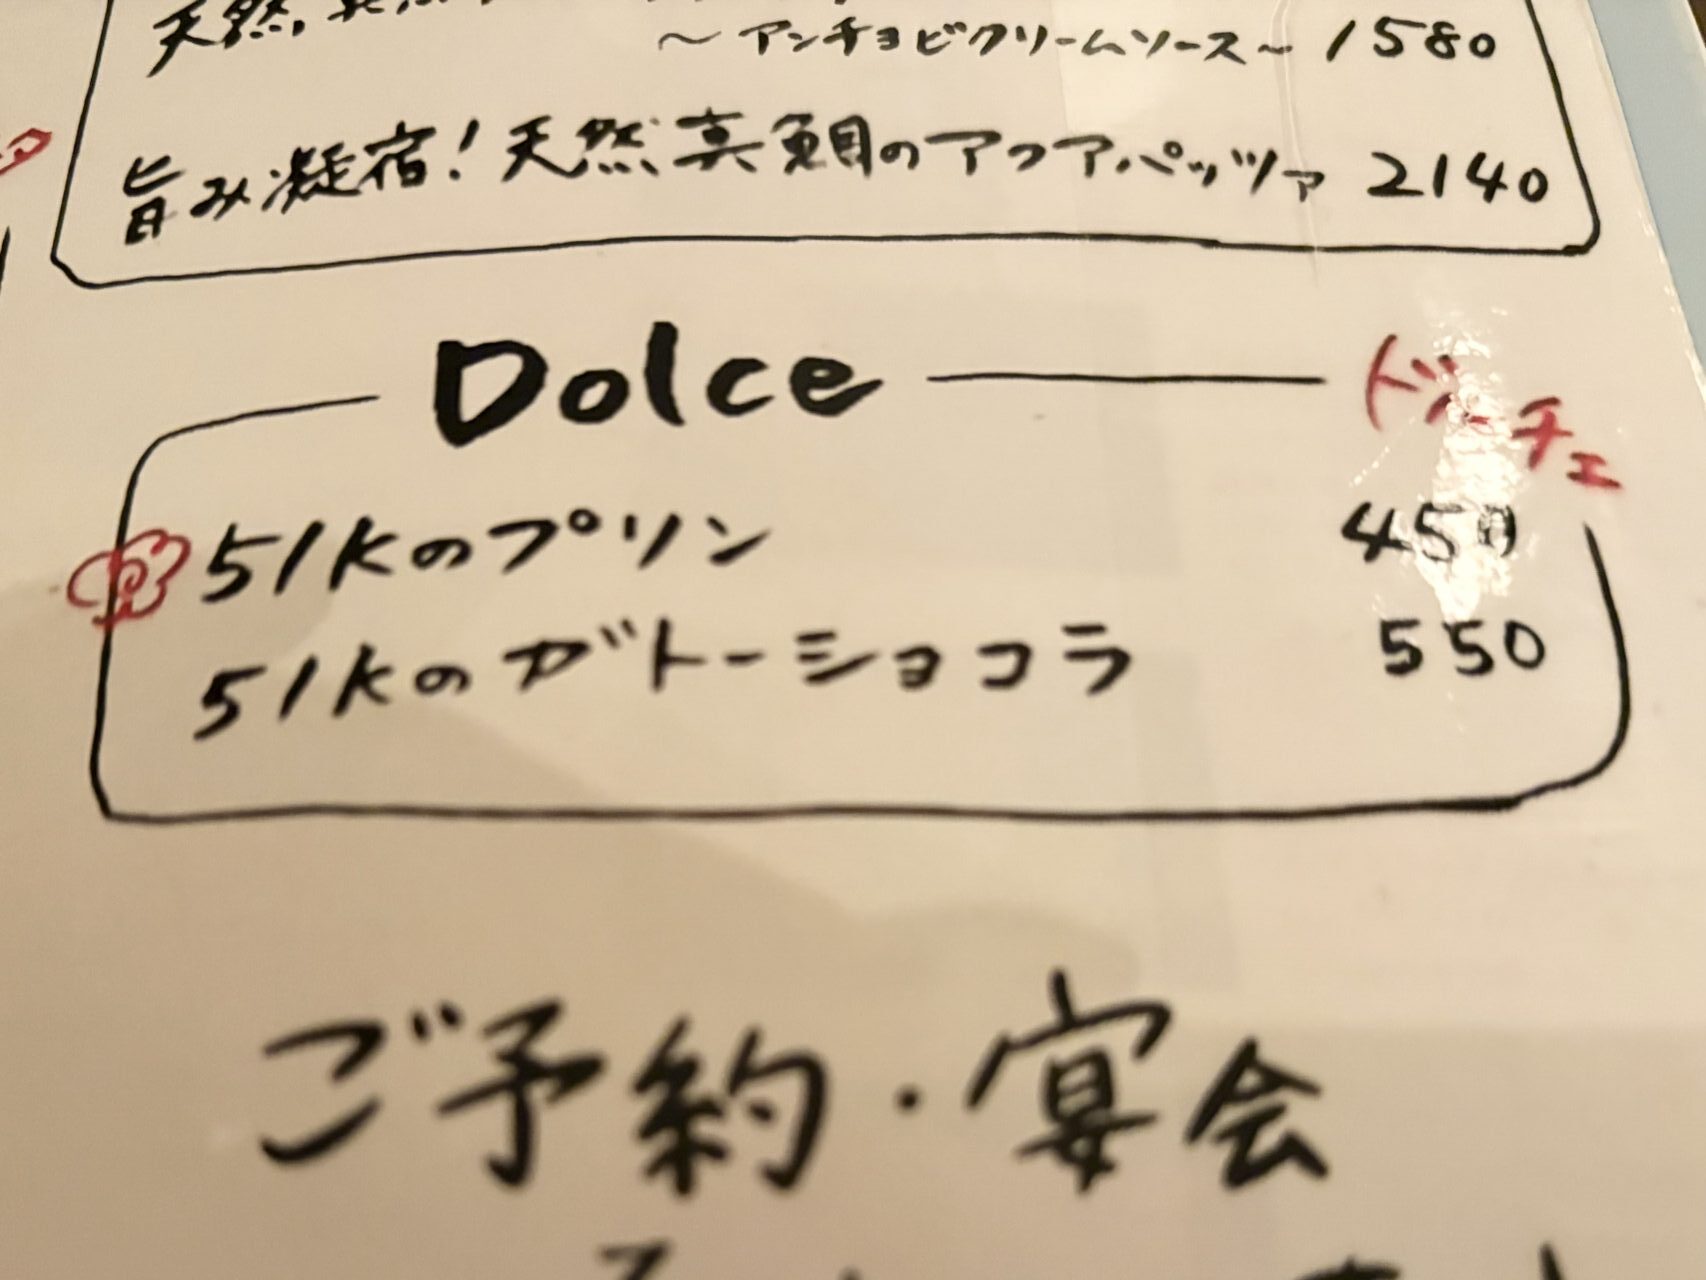 天然
～アンチョビクリームソース～ 1580
旨み凝宿！天然真鯛のアクアパッツァ 2140
Dolce ドルチェ
51Kのプリン 450
51Kのガトーショコラ 550
ご予約・宴会